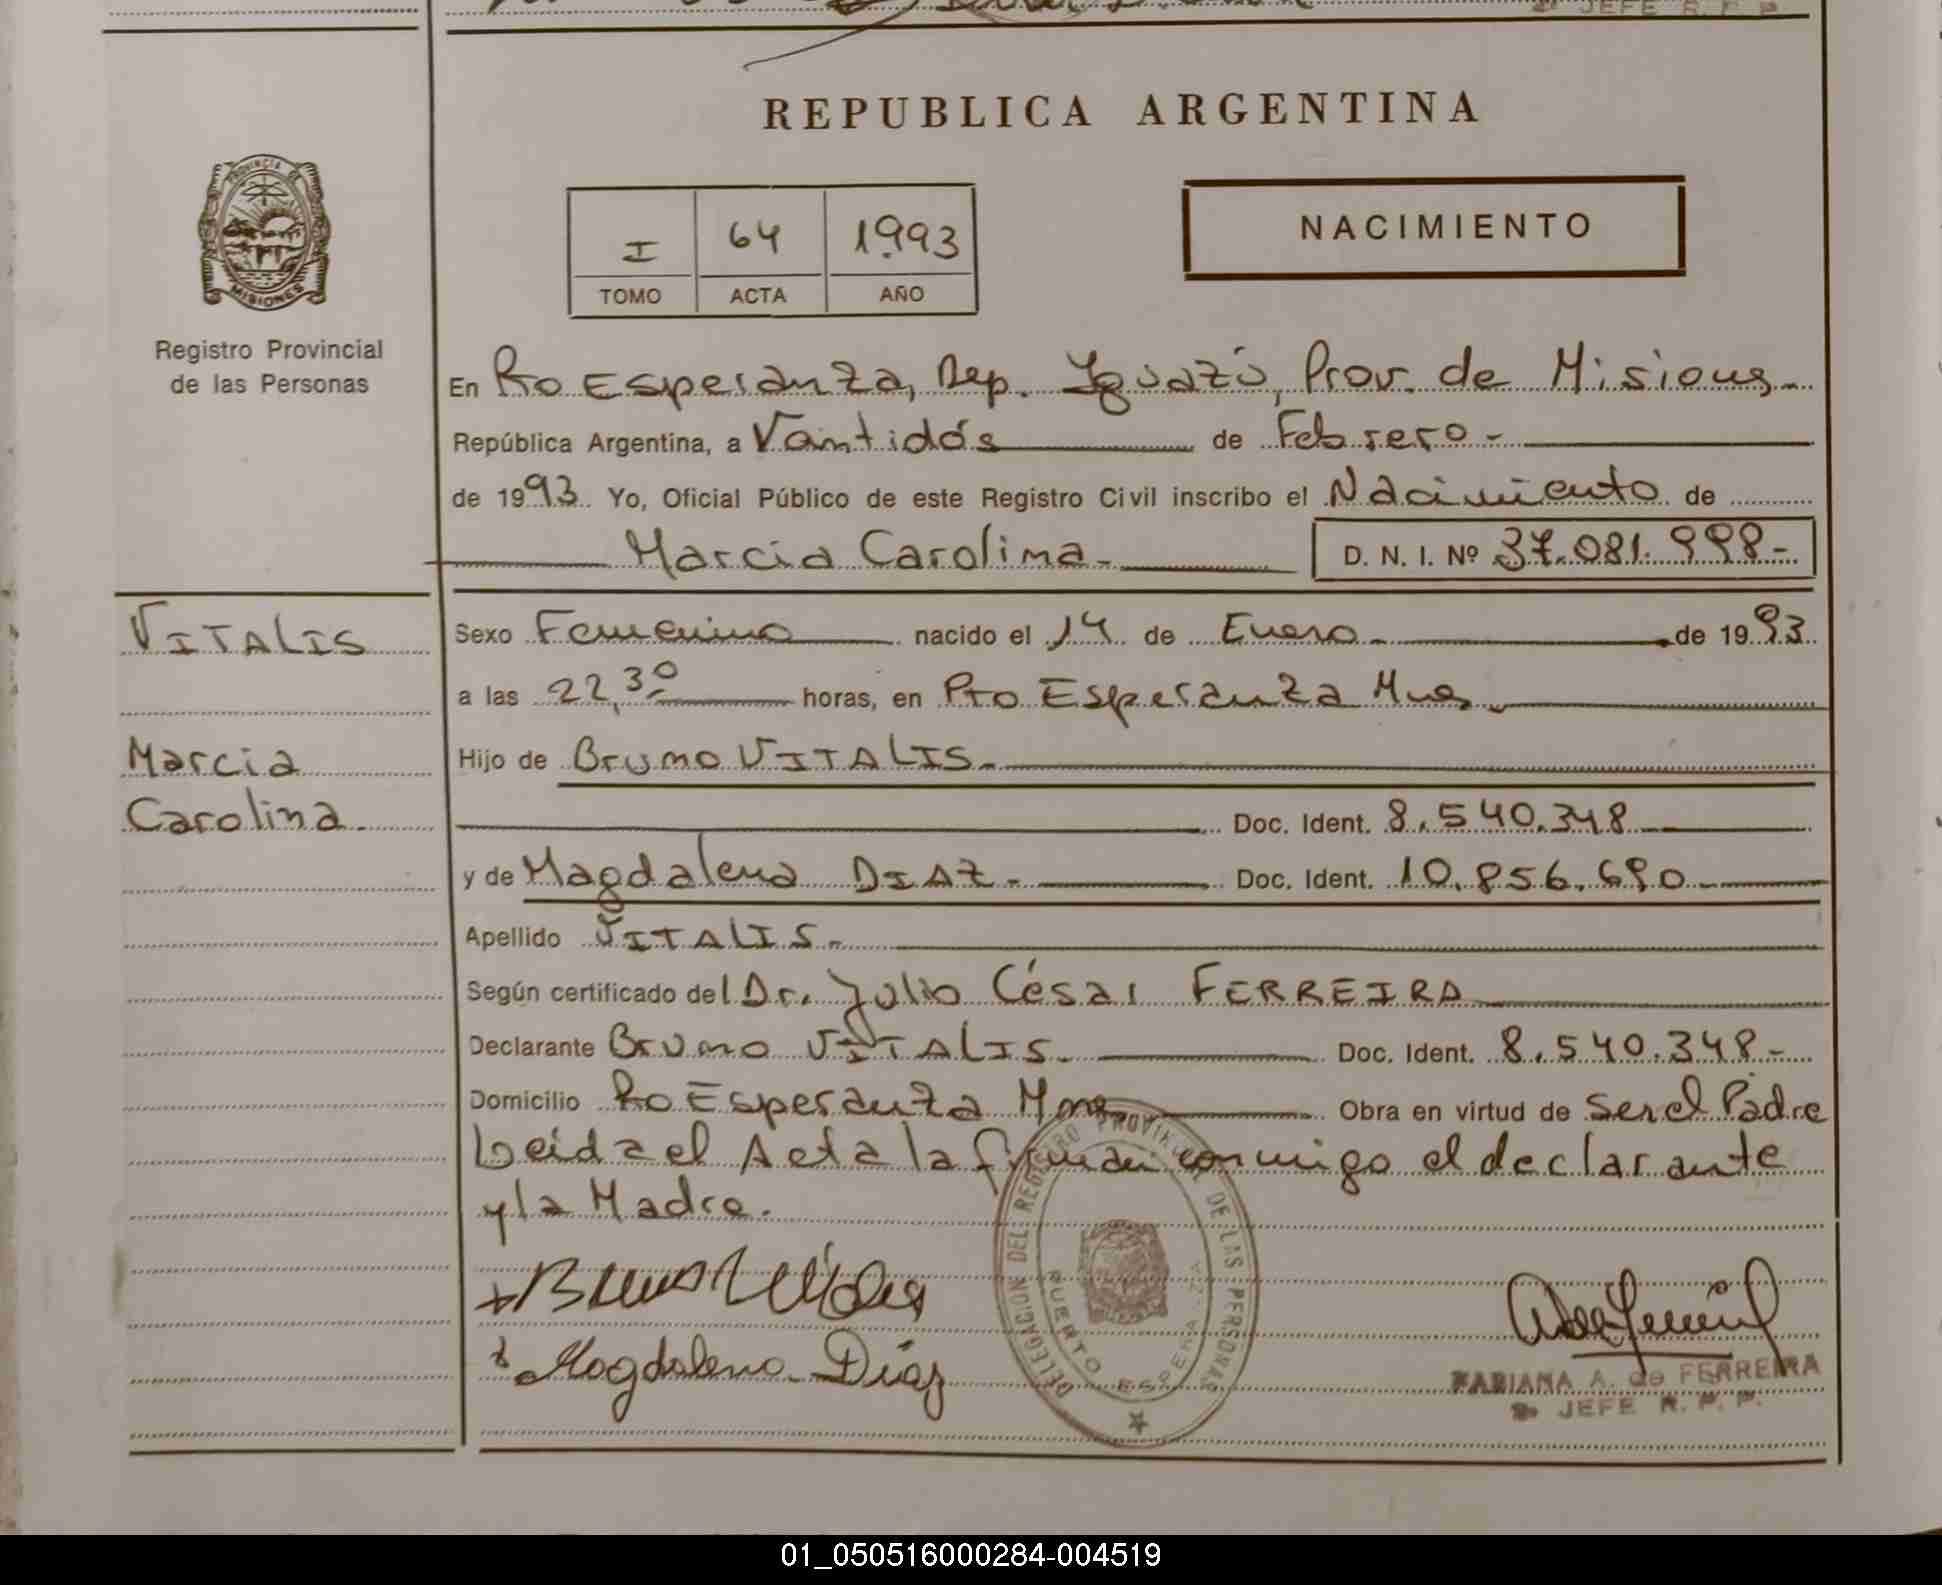 JEFE R. P. P
REPUBLICA ARGENTINA
PROVINCIA DE
MISIONES
Registro Provincial
de las Personas
I 64 1993
TOMO ACTA AÑO
NACIMIENTO
En Pto Esperanza, Dep. Iguazú, Prov. de Misiones.
República Argentina, a Vaintidós de Febrero -
de 1993. Yo, Oficial Público de este Registro Civil inscribo el Nacimiento de
Marcia Carolina - D. N. I. Nº 37.081.998-
VITALIS
Marcia
Carolina.
Sexo Femenino nacido el 14 de Enero - de 1993.
a las 22,30 horas, en Pto Esperanza Mnes
Hijo de Bruno VITALIS.
Doc. Ident. 8.540.348
y de Magdalena DIAZ. Doc. Ident. 10.856.690
Apellido VITALIS.
Según certificado del Dr. Julio César FERREIRA
Declarante Bruno VITALIS. Doc. Ident. 8.540.348-
Domicilio Pto Esperanza Mnes Obra en virtud de ser el Padre
Leida el Acta la firman conmigo el declarante
y la Madre.
Bruno Vitalis
Magdalena Díaz
DELEGACION DEL REGISTRO PROVINCIAL DE LAS PERSONAS
PUERTO ESPERANZA
FABIANA A. de FERREIRA
JEFE R. P. P.
01_050516000284-004519